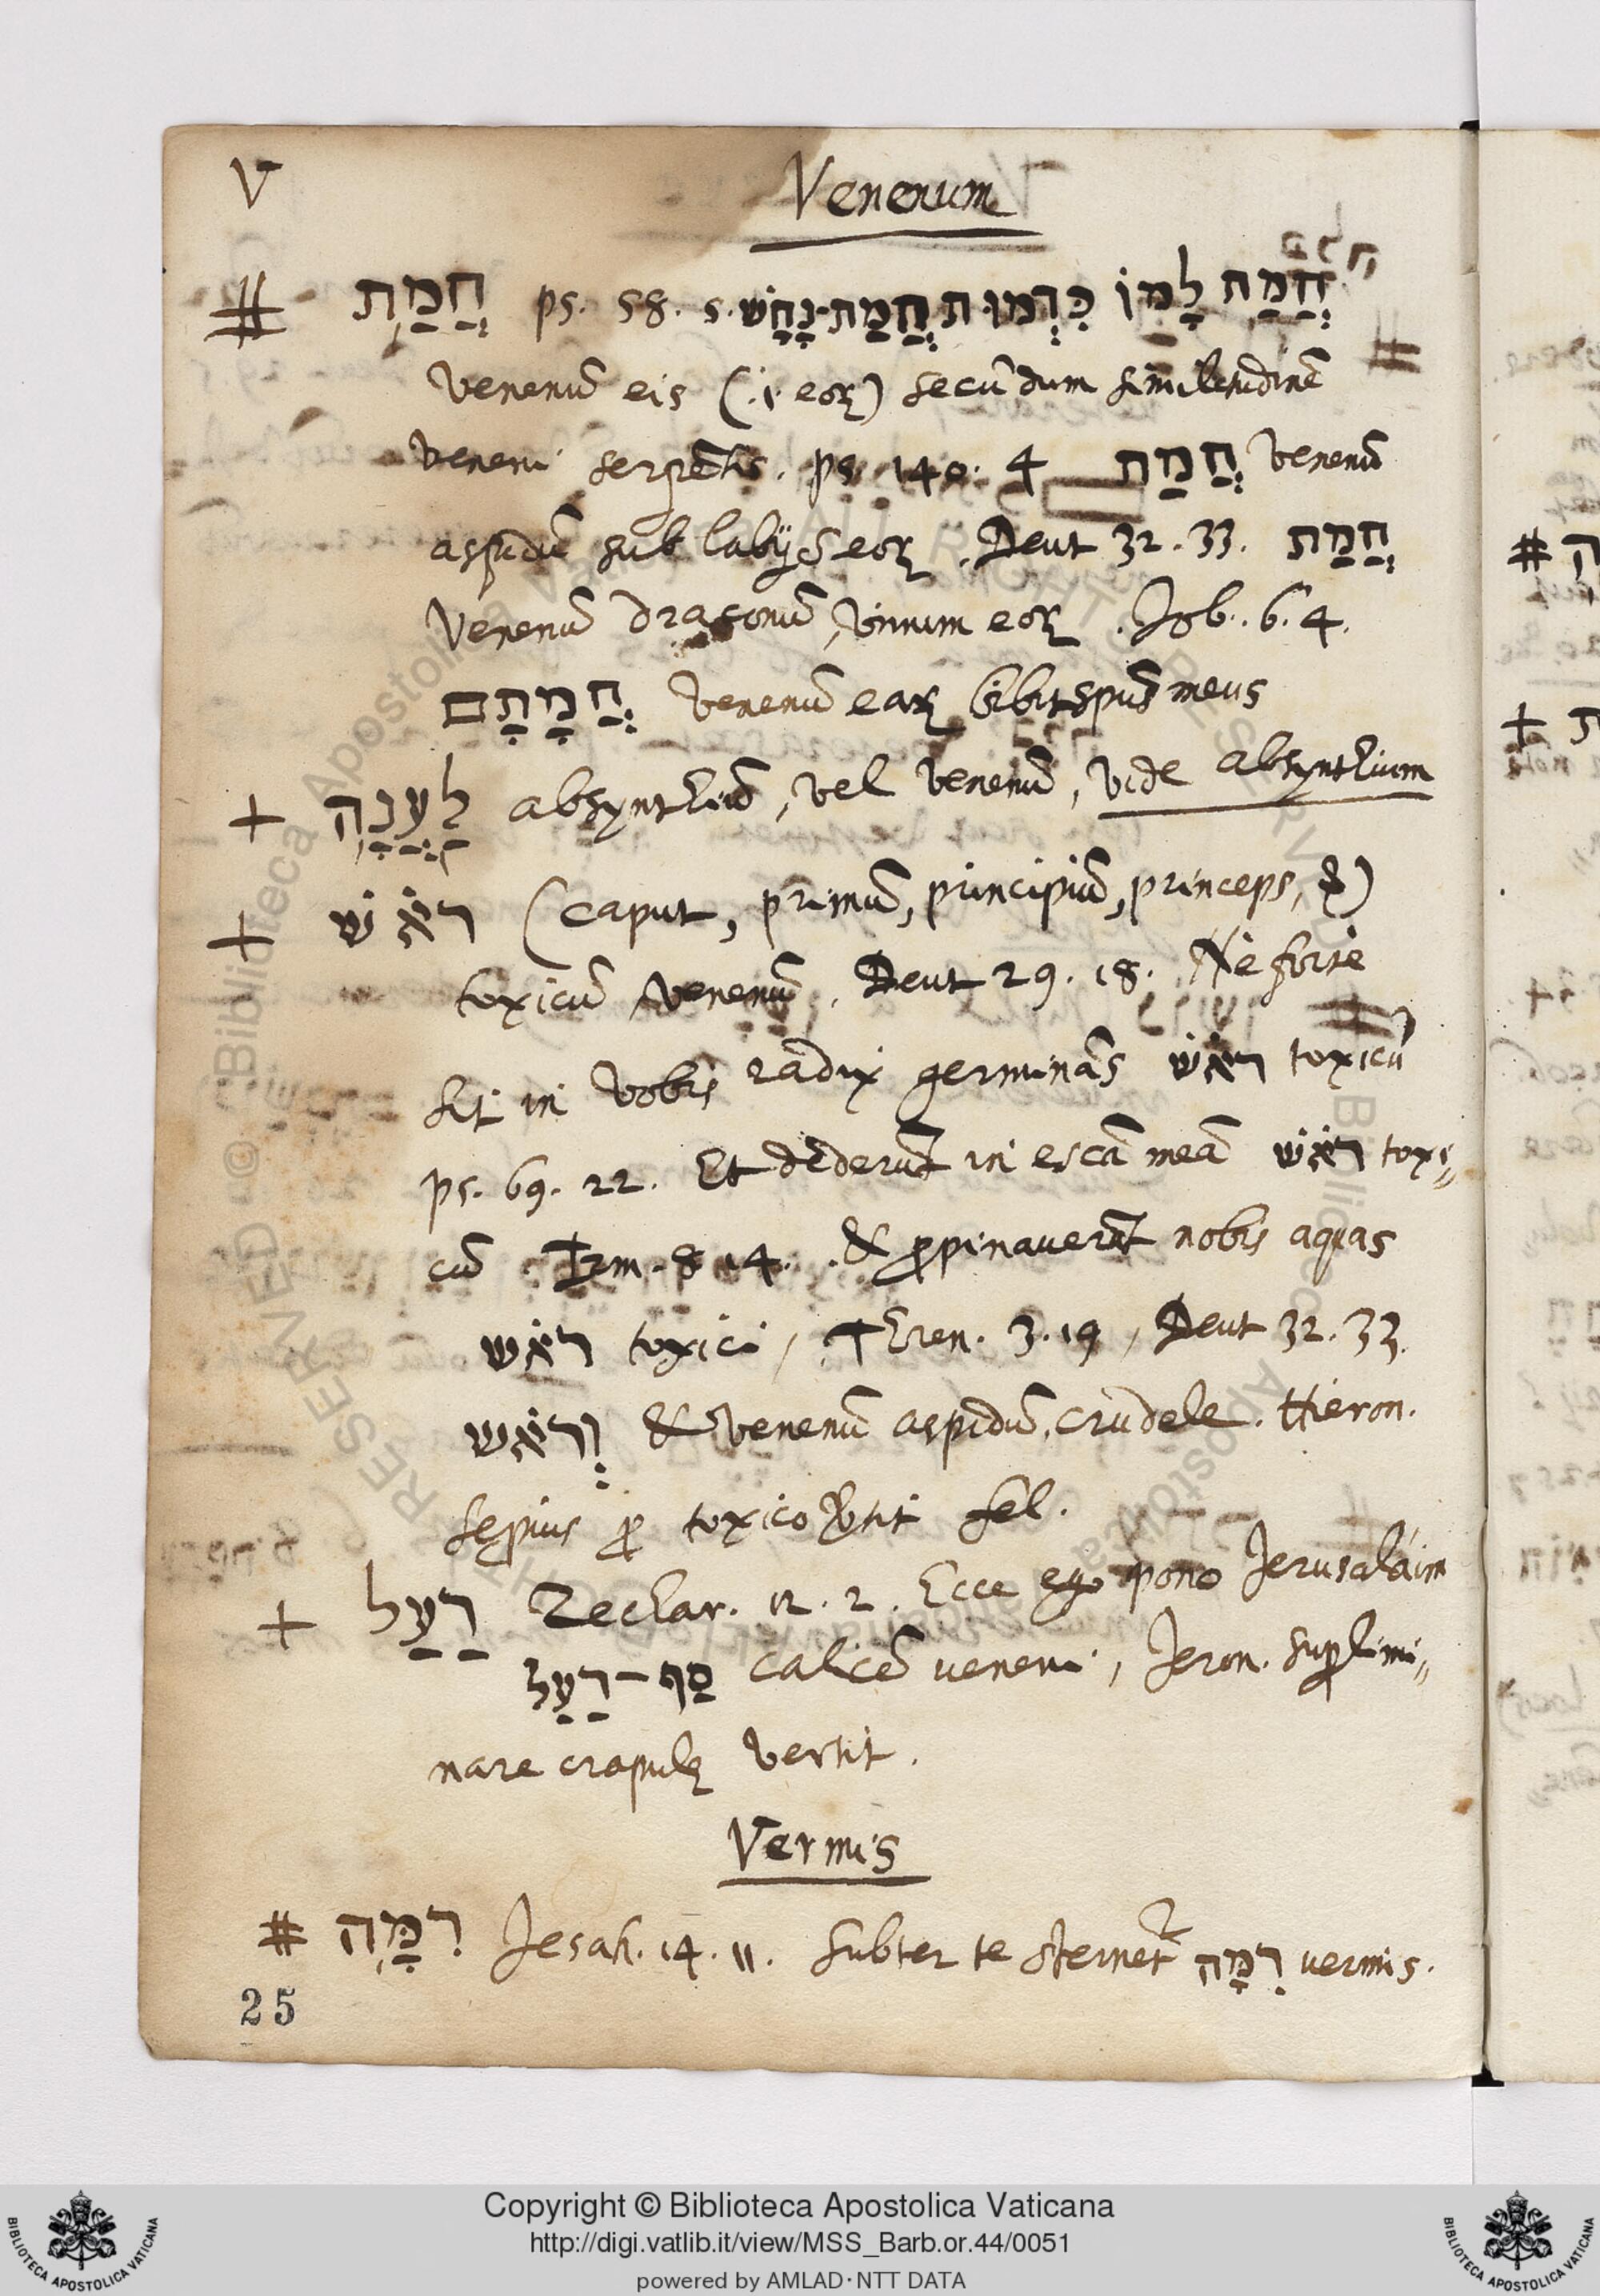 V
Venenum
# חֲמַת ps. 58. 5. חֲמַת לָמוֹ כִּדְמוּת חֲמַת־נָחָשׁ
venenū eis (.i. eoꝝ) secūdum similitudinē
veneni serpētis. ps. 140. 4 חֲמַת venenū
aspidū sub labijs eoꝝ. Deut 32. 33. חֲמַת
Venenū draconū, vinum eoꝝ. Job. 6. 4.
חֲמָתָם venenū eaꝝ bibit spūs meus
+ לַעֲנָה absynthiū, vel venenū, vide absynthium
+ רֹאשׁ (caput, primū, principiū, princeps, &)
toxicū, venenū. Deut 29. 18. Ne forte
sit in vobis radix germinās רֹאשׁ toxicū
ps. 69. 22. Et dederūt in escā meā רֹאשׁ toxi„
cū. Irm. 8 14. & ꝓpinauerūt nobis aquas
רֹאשׁ toxici, Thren. 3. 19, Deut 32. 33.
וְרֹאשׁ & venenū aspidū, crudele. Hieron.
sepius ꝓ toxico v̄tit fel.
+ רַעַל Zechar. 12. 2. Ecce ego pono Jerusaláim
סַף־רַעַל calicē veneni, Jeron. suꝑlimi„
nare crapulę vertit.
Vermis
# רִמָּה Jesah. 14. 11. Subter te sternet᷑ רִמָּה vermis.
25
Copyright © Biblioteca Apostolica Vaticana
http://digi.vatlib.it/view/MSS_Barb.or.44/0051
powered by AMLAD·NTT DATA
BIBLIOTECA APOSTOLICA VATICANA
BIBLIOTECA APOSTOLICA VATICANA